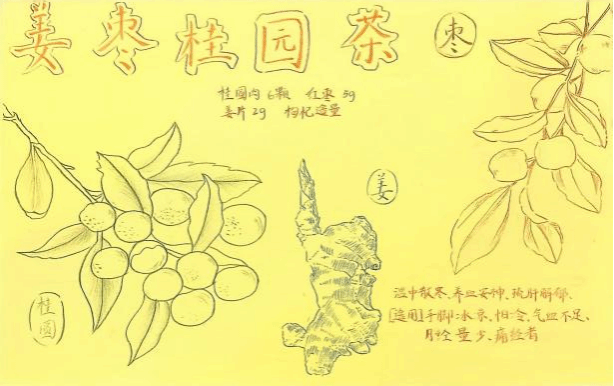 姜枣桂园茶
枣
桂圆肉 6颗 红枣 5g
姜片 2g 枸杞适量
姜
桂圆
温中散寒、养血安神、疏肝解郁.
[适用]手脚冰凉、怕冷、气血不足、
月经量少、痛经者